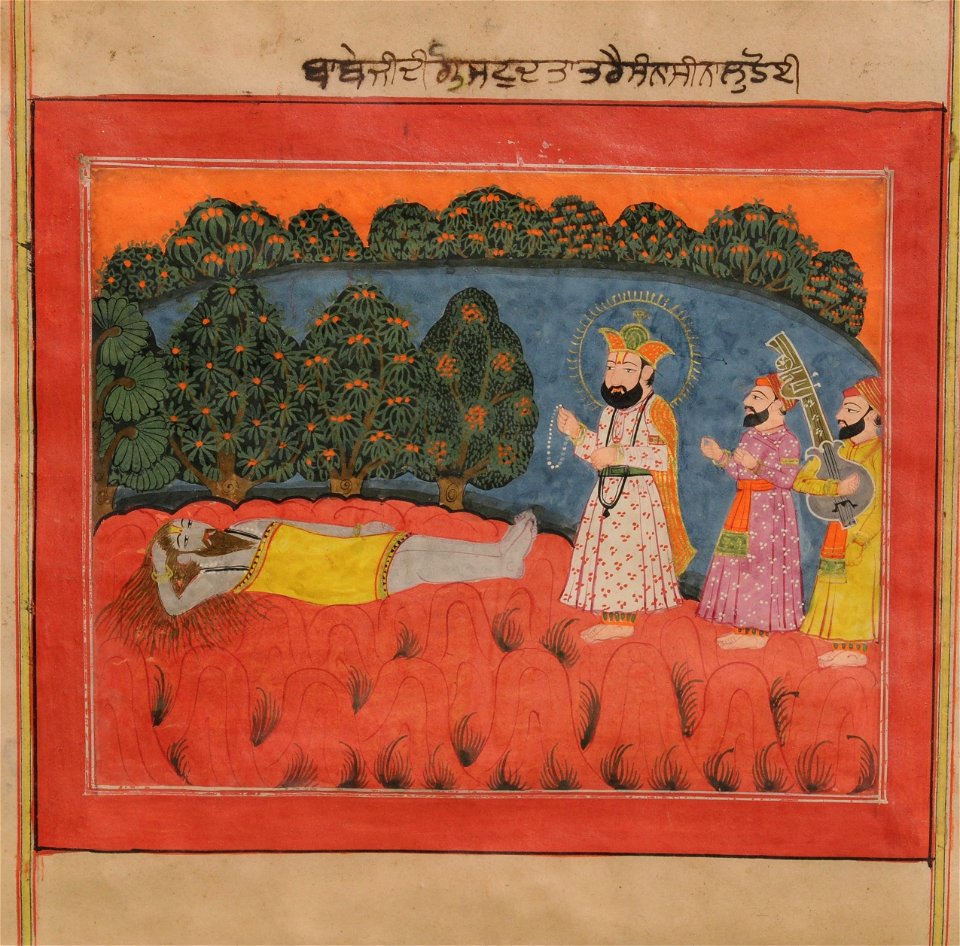 ਬਾਬੇਜੀਦੀ ਗੋਸਟ ਦਤਾਤਰੈ ਸੰਨਸੀ ਨਾਲੁ ਹੋਈ